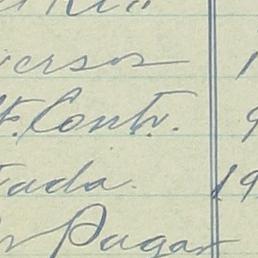 versos 1
t. Contr. 9
tada. 19
Pagar